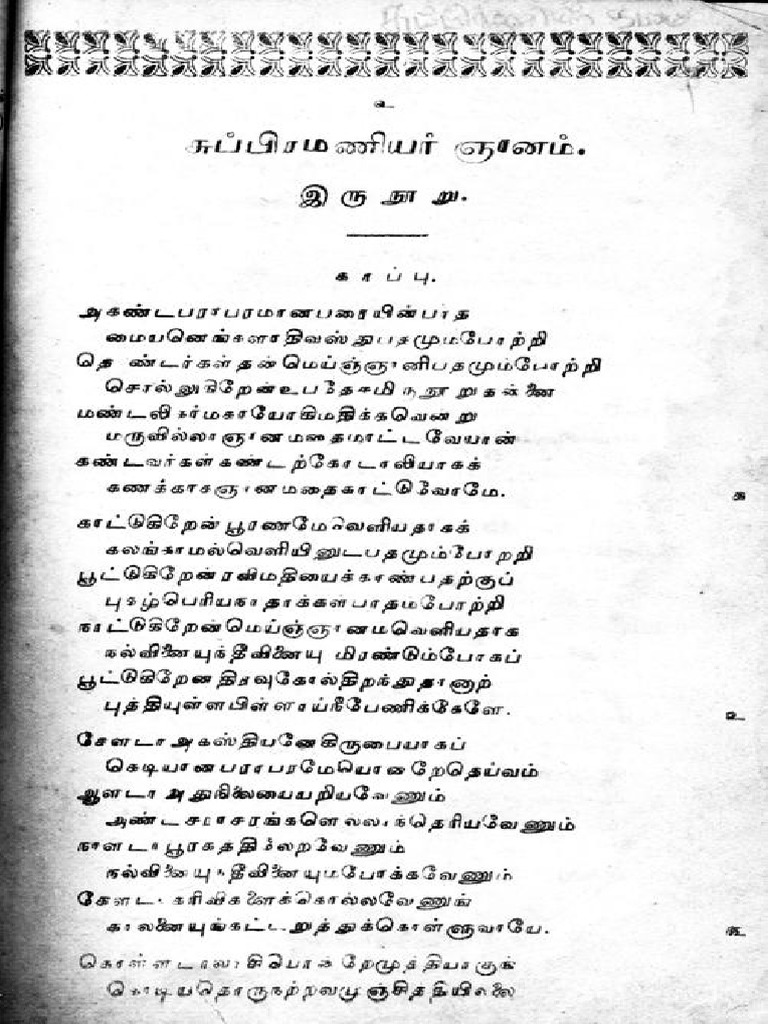 உ
சுப்பிரமணியர் ஞானம்.
இருநூறு.
காப்பு.
அகண்டபராபரமானபரையின்பாத
மையனெங்களாதிவஸ்துபதமும்போற்றி
தொண்டர்கள்தன்மெய்ஞ்ஞானிபதமும்போற்றி
சொல்லுகிறேன்உபதேசமிருநூறுதன்னை
மண்டலிகர்மகாயோகிமதிக்கவென்று
மருவில்லாஞானமதைமாட்டவேயான்
கண்டவர்கள்கண்டற்கோடாலியாகக்
கணக்காகஞானமதைகாட்டுவோமே.
க
காட்டுகிறேன்பூரணமேவெளியதாகக்
கலங்காமல்வெளியினுடபதமும்போற்றி
பூட்டுகிறேன்ரவிமதியைக்காண்பதற்குப்
புகழ்பெரியநாதாக்கள்பாதம்போற்றி
நாட்டுகிறேன்மெய்ஞ்ஞானமவெளியதாக
நல்வினையுந்தீவினையு மிரண்டும்போகப்
பூட்டுகிறேனதிரவுகோல்திறந்துதானுற்
புத்தியுள்ளபிள்ளாய்நீபேணிக்கேளே.
உ
கேளடா அகஸ்தியனேகிருபையாகப்
கெடியானபராபரமேயொன்றேதெய்வம்
ஆளடா அதுநிலையையறியவேணும்
அண்டசராசரங்களெல்லாந்தெரியவேணும்
நாளடா பூரகத்திலேறவேணும்
நல்வினையுந்தீவினையுமபோக்கவேணும்
கேளடா கரிவிகளைக்கொல்லவேணுங்
காலனையுங்கட்டறுத்துக்கொள்ளுவாயே.
ங
கொள்ளடா பொன்றேமுத்தியாகுங்
கொடியதொருநற்றவமுஞ்சித்தியில்லை